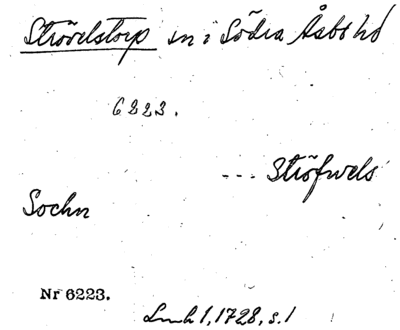 Strövelstorp sn i Södra Åsbo hd
6223.
--- Ströfwels
Sochn
Nr 6223.
Lmh 1, 1728, s. 1